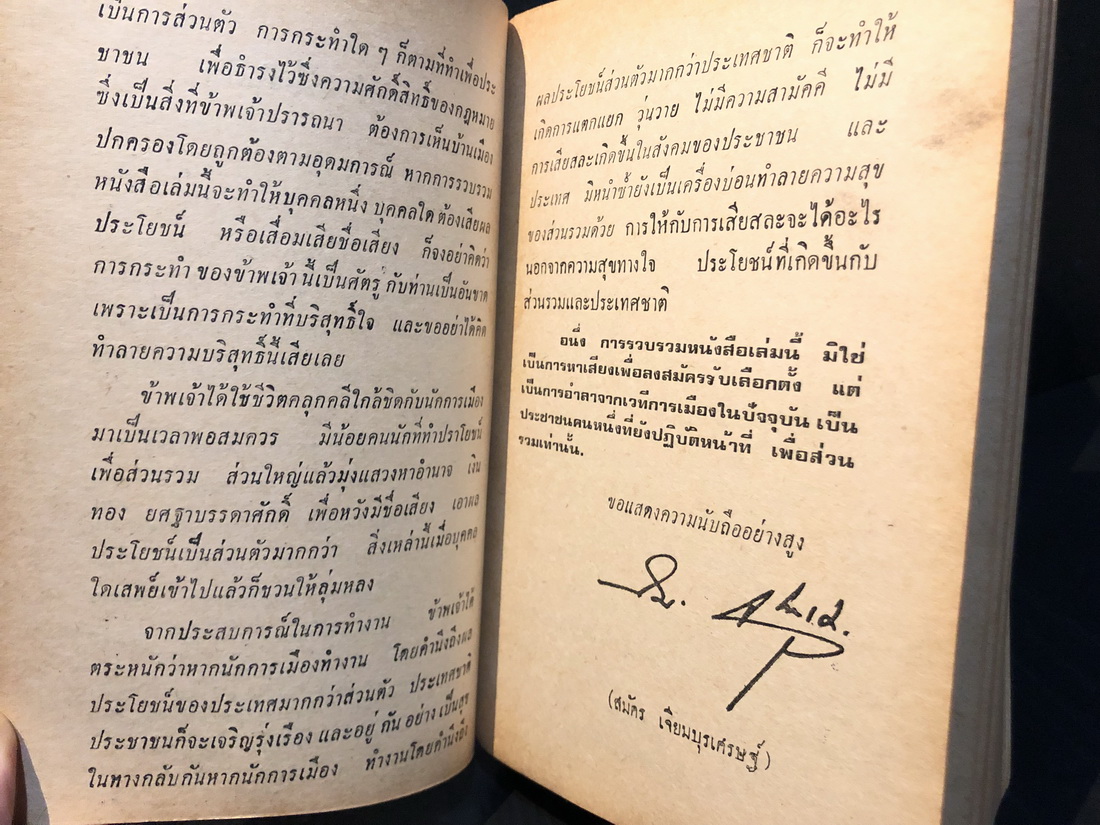 เป็นการส่วนตัว การกระทำใด ๆ ก็ตามที่ทำเพื่อประ
ชาชน เพื่อธำรงไว้ซึ่งความศักดิ์สิทธิ์ของกฎหมาย
ซึ่งเป็นสิ่งที่ข้าพเจ้าปรารถนา ต้องการเห็นบ้านเมือง
ปกครองโดยถูกต้องตามอุดมการณ์ หากการรวบรวม
หนังสือเล่มนี้จะทำให้บุคคลหนึ่ง บุคคลใด ต้องเสียผล
ประโยชน์ หรือเสื่อมเสียชื่อเสียง ก็จงอย่าคิดว่า
การกระทำ ของข้าพเจ้านี้เป็นศัตรู กับท่านเป็นอันขาด
เพราะเป็นการกระทำที่บริสุทธิ์ใจ และขออย่าได้คิด
ทำลายความบริสุทธิ์นี้เสียเลย
ข้าพเจ้าได้ใช้ชีวิตคลุกคลีใกล้ชิดกับนักการเมือง
มาเป็นเวลาพอสมควร มีน้อยคนนักที่ทำปราโยชน์
เพื่อส่วนรวม ส่วนใหญ่แล้วมุ่งแสวงหาอำนาจ เงิน
ทอง ยศฐาบรรดาศักดิ์ เพื่อหวังมีชื่อเสียง เอาผล
ประโยชน์เป็นส่วนตัวมากกว่า สิ่งเหล่านี้เมื่อบุคคล
ใดเสพย์เข้าไปแล้วก็ชวนให้ลุ่มหลง
จากประสบการณ์ในการทำงาน ข้าพเจ้าได้
ตระหนักว่าหากนักการเมืองทำงาน โดยคำนึงถึงผล
ประโยชน์ของประเทศมากกว่าส่วนตัว ประเทศชาติ
ประชาชนก็จะเจริญรุ่งเรือง และอยู่ กัน อย่าง เป็นสุข
ในทางกลับกันหากนักการเมือง ทำงานโดยคำนึงถึง
ผลประโยชน์ส่วนตัวมากกว่าประเทศชาติ ก็จะทำให้
เกิดการแตกแยก วุ่นวาย ไม่มีความสามัคคี ไม่มี
การเสียสละเกิดขึ้นในสังคมของประชาชน และ
ประเทศ มิหนำซ้ำยังเป็นเครื่องบ่อนทำลายความสุข
ของส่วนรวมด้วย การให้กับการเสียสละจะได้อะไร
นอกจากความสุขทางใจ ประโยชน์ที่เกิดขึ้นกับ
ส่วนรวมและประเทศชาติ
อนึ่ง การรวบรวมหนังสือเล่มนี้ มิใช่
เป็นการหาเสียงเพื่อลงสมัครรับเลือกตั้ง แต่
เป็นการอำลาจากเวทีการเมืองในปัจจุบัน เป็น
ประชาชนคนหนึ่งที่ยังปฏิบัติหน้าที่ เพื่อส่วน
รวมเท่านั้น.
ขอแสดงความนับถืออย่างสูง
(สมัคร เจียมบุรเศรษฐ์)